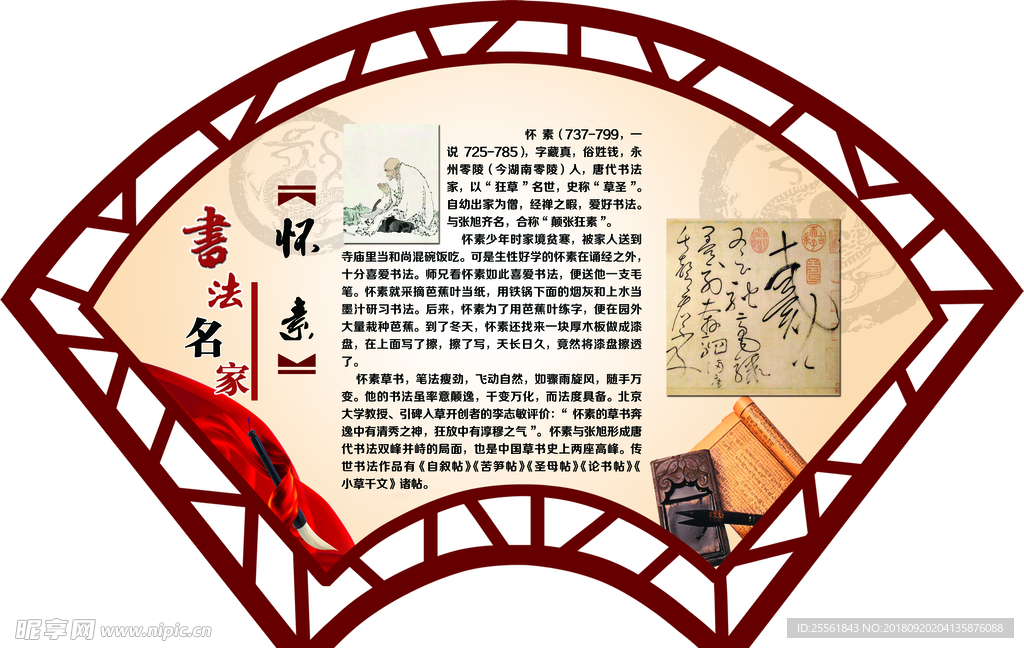 書法名家
【怀素】
怀素（737-799，一
说 725-785），字藏真，俗姓钱，永
州零陵（今湖南零陵）人，唐代书法
家，以“狂草”名世，史称“草圣”。
自幼出家为僧，经禅之暇，爱好书法。
与张旭齐名，合称“颠张狂素”。
怀素少年时家境贫寒，被家人送到
寺庙里当和尚混碗饭吃。可是生性好学的怀素在诵经之外，
十分喜爱书法。师兄看怀素如此喜爱书法，便送他一支毛
笔。怀素就采摘芭蕉叶当纸，用铁锅下面的烟灰和上水当
墨汁研习书法。后来，怀素为了用芭蕉叶练字，便在园外
大量栽种芭蕉。到了冬天，怀素还找来一块厚木板做成漆
盘，在上面写了擦，擦了写，天长日久，竟然将漆盘擦透
了。
怀素草书，笔法瘦劲，飞动自然，如骤雨旋风，随手万
变。他的书法虽率意颠逸，千变万化，而法度具备。北京
大学教授、引碑入草开创者的李志敏评价：“怀素的草书奔
逸中有清秀之神，狂放中有淳穆之气”。怀素与张旭形成唐
代书法双峰并峙的局面，也是中国草书史上两座高峰。传
世书法作品有《自叙帖》《苦笋帖》《圣母帖》《论书帖》《
小草千文》诸帖。
昵享网 www.nipic.cn
ID:25561843 NO:20180920204135876088